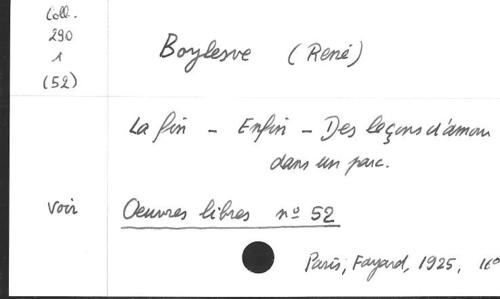 Coll.
290
1
(52)
Boylesve (René)
La fin - Enfin - Des leçons d'amour
dans un parc.
voir
Oeuvres libres nº 52
Paris, Fayard, 1925, 16º